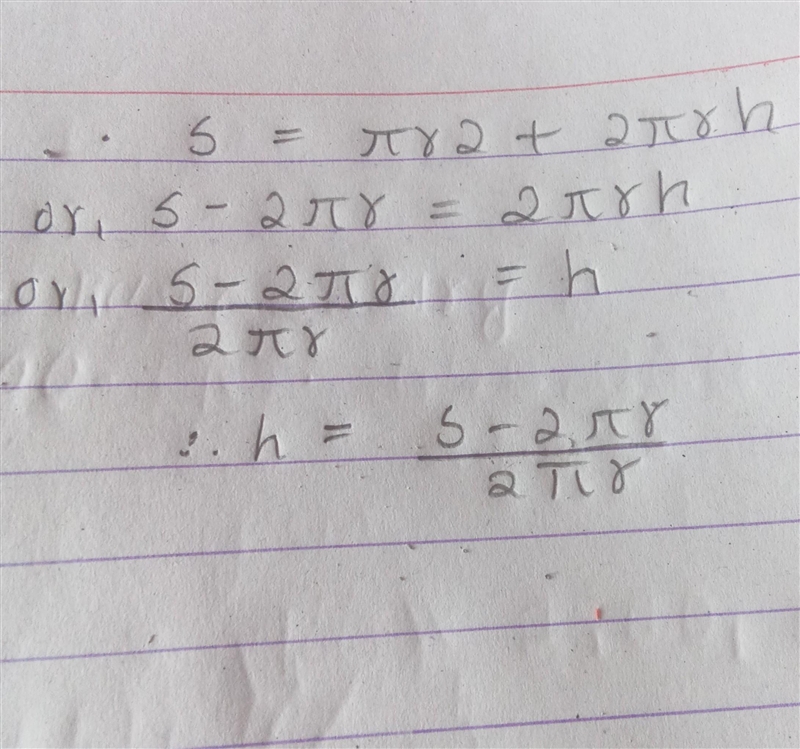 . S = πr2 + 2πrh
or, S - 2πr = 2πrh
or, S - 2πr / 2πr = h
∴ h = S - 2πr / 2πr